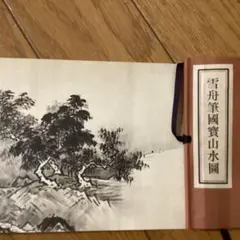 雪舟筆國寶山水圖